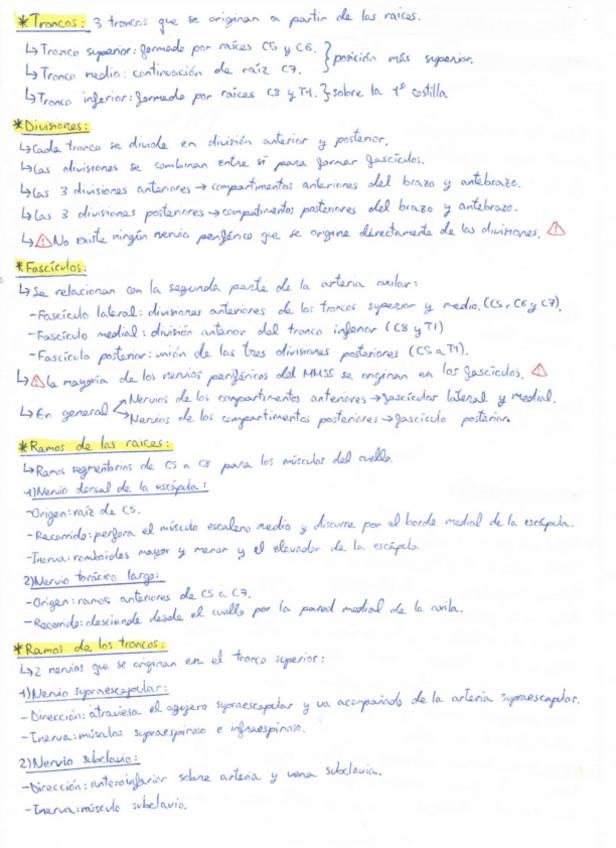 *Troncos: 3 troncos que se originan a partir de las raíces.
↳Tronco superior: formado por raíces C5 y C6. } posición más superior.
↳Tronco medio: continuación de raíz C7.
↳Tronco inferior: formado por raíces C8 y T1. } sobre la 1º costilla
*Divisiones:
↳Cada tronco se divide en división anterior y posterior.
↳Las divisiones se combinan entre sí para formar fascículos.
↳Las 3 divisiones anteriores → compartimentos anteriores del brazo y antebrazo.
↳Las 3 divisiones posteriores → compartimentos posteriores del brazo y antebrazo.
↳⚠No existe ningún nervio periférico que se origine directamente de las divisiones. ⚠
*Fascículos:
↳Se relacionan con la segunda parte de la arteria axilar:
-Fascículo lateral: divisiones anteriores de los troncos superior y medio. (C5, C6 y C7).
-Fascículo medial: división anterior del tronco inferior (C8 y T1)
-Fascículo posterior: unión de las tres divisiones posteriores (C5 a T1).
↳⚠La mayoría de los nervios periféricos del MMSS se originan en los fascículos. ⚠
↳En general < Nervios de los compartimentos anteriores → fascículos lateral y medial.
Nervios de los compartimentos posteriores → fascículo posterior.
*Ramos de las raíces:
↳Ramos segmentarios de C5 a C8 para los músculos del cuello.
1)Nervio dorsal de la escápula:
-Origen: raíz de C5.
-Recorrido: perfora el músculo escaleno medio y discurre por el borde medial de la escápula.
-Inerva: romboides mayor y menor y el elevador de la escápula.
2)Nervio torácico largo:
-Origen: ramos anteriores de C5 a C7.
-Recorrido: desciende desde el cuello por la pared medial de la axila.
*Ramos de los troncos:
↳2 nervios que se originan en el tronco superior:
1)Nervio supraescapular:
-Dirección: atraviesa el agujero supraescapular y va acompañado de la arteria supraescapular.
-Inerva: músculos supraespinoso e infraespinoso.
2)Nervio subclavio:
-Dirección: anteroinferior sobre arteria y vena subclavia.
-Inerva: músculo subclavio.